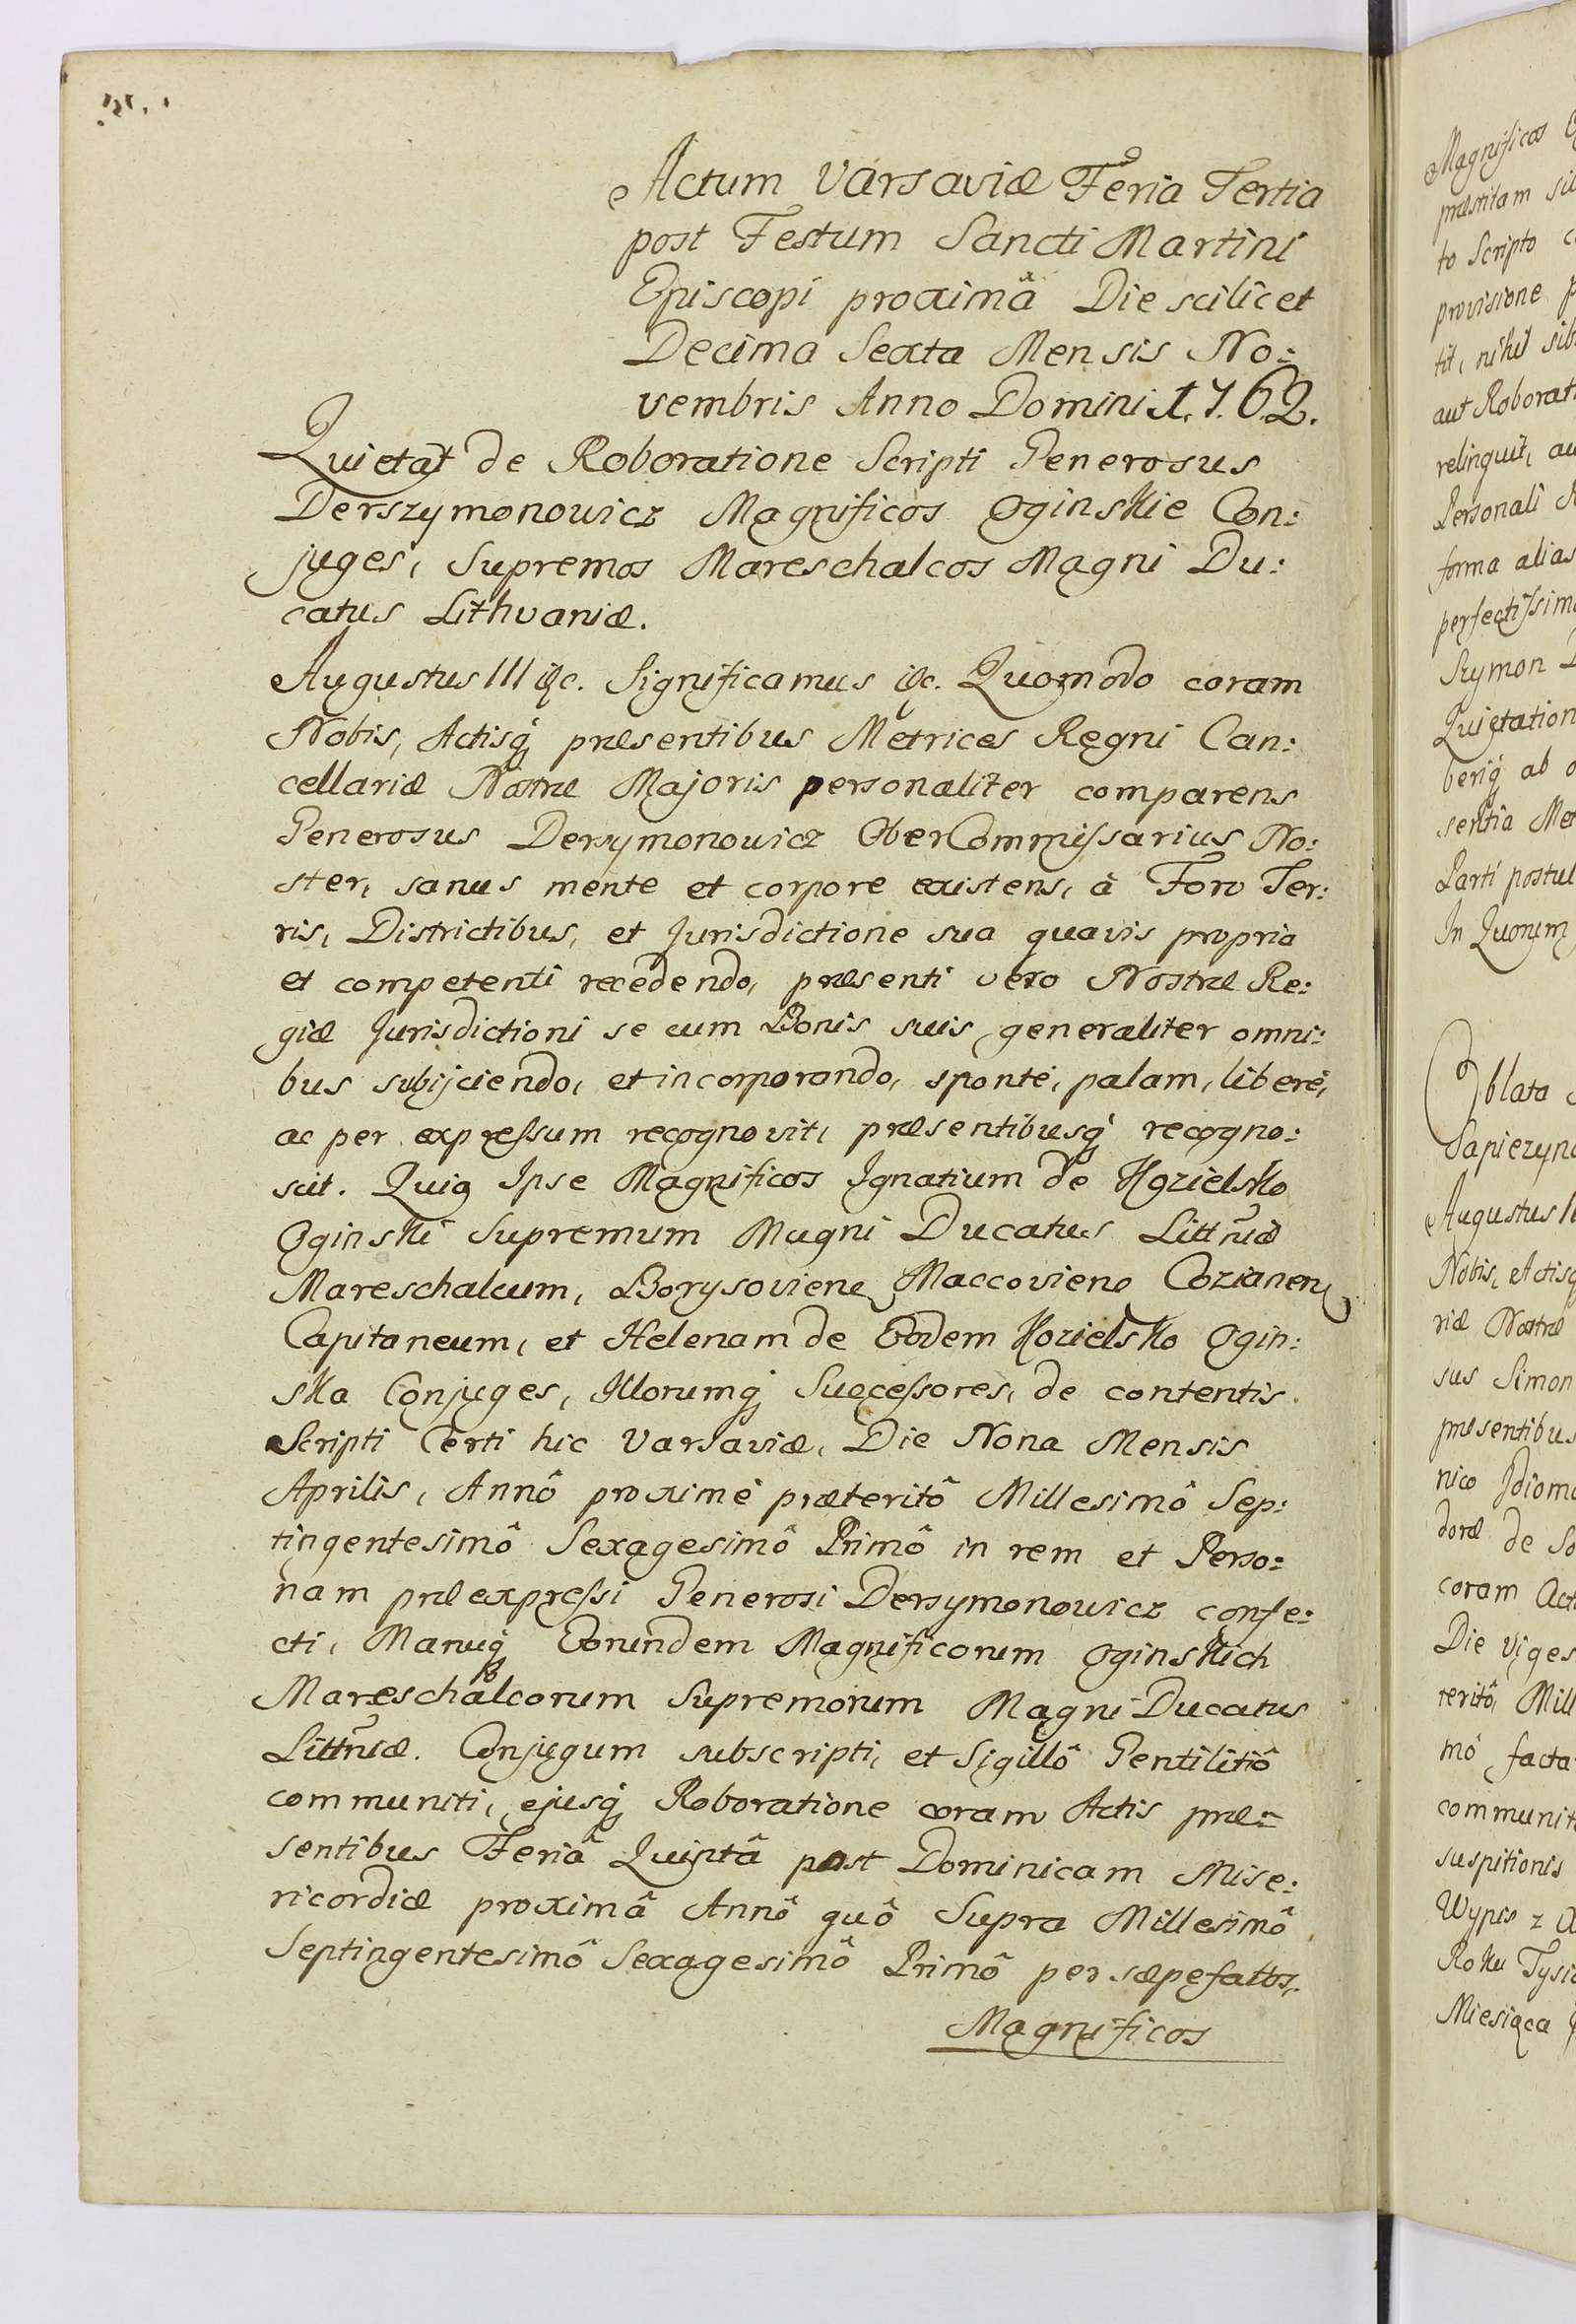 Actum Varsaviæ Feria Tertia
post Festum Sancti Martini
Episcopi proximâ Die scilicet
Decima Sexta Mensis No:
vembris Anno Domini 1.7.6.2.
Quietat de Roboratione Scripti Generosus
Derszymonowicz Magnificos Oginskie Con:
juges, Supremos Mareschalcos Magni Du:
catus Lithvaniæ.
Augustus III &c. Significamus &c. Quomodo coram
Nobis, Actisq́ præsentibus Metrices Regni Can:
cellariæ Nostræ Majoris personaliter comparens
Generosus Dersymonowicz OberCommissarius No:
ster, sanus mente et corpore existens, à Foro Ter:
ris, Districtibus, et Jurisdictione sua quavis propria
et competenti recedendo, præsenti vero Nostræ Re:
giæ Jurisdictioni se cum Bonis suis generaliter omni:
bus subijciendo, et incorporando, sponte, palam, liberè,
ac per expressum recognovit, præsentibusq́ recogno:
scit. Quia Ipse Magnificos Ignatium de Kozielsko
Oginski Supremum Magni Ducatus Littñiæ
Mareschalcum, Borysoviene Maccoviene Cozianen
Capitaneum, et Helenam de Eodem Kozielsko Ogin:
ska Conjuges, Illorumq́ Successores, de contentis
Scripti Certi hic Varsaviæ, Die Nona Mensis
Aprilis, Annô proximè præteritô Millesimô Sep:
tingentesimô Sexagesimô Primô in rem et Perso:
nam præexpressi Generosi Dersymonowicz confe:
cti, Manuq́ Eorundem Magnificorum Oginskich
Mareschalcorum Supremorum Magni Ducatus
Littñiæ. Conjugum subscripti, et Sigillô Gentilitiô
communiti, ejusq́ Roboratione coram Actis præ:
sentibus Feriâ Quintâ post Dominicam Mise:
ricordiæ proximâ Annô quô Supra Millesimô
Septingentesimô Sexagesimô Primô per sæpefattos,
Magnificos
Magnificos
præstitam
to Scripto
provisione
tit, nihil
aut
relinquit,
Personali
forma alias
Szymon
ab
Parti
In Quorum
Oblata
Augustus
Nobis,
riæ Nostræ
sus Simon
nico
doræ de
coram
Die
teritô,
mô facta
suspitionis
Wypis z
Roku
Miesiąca